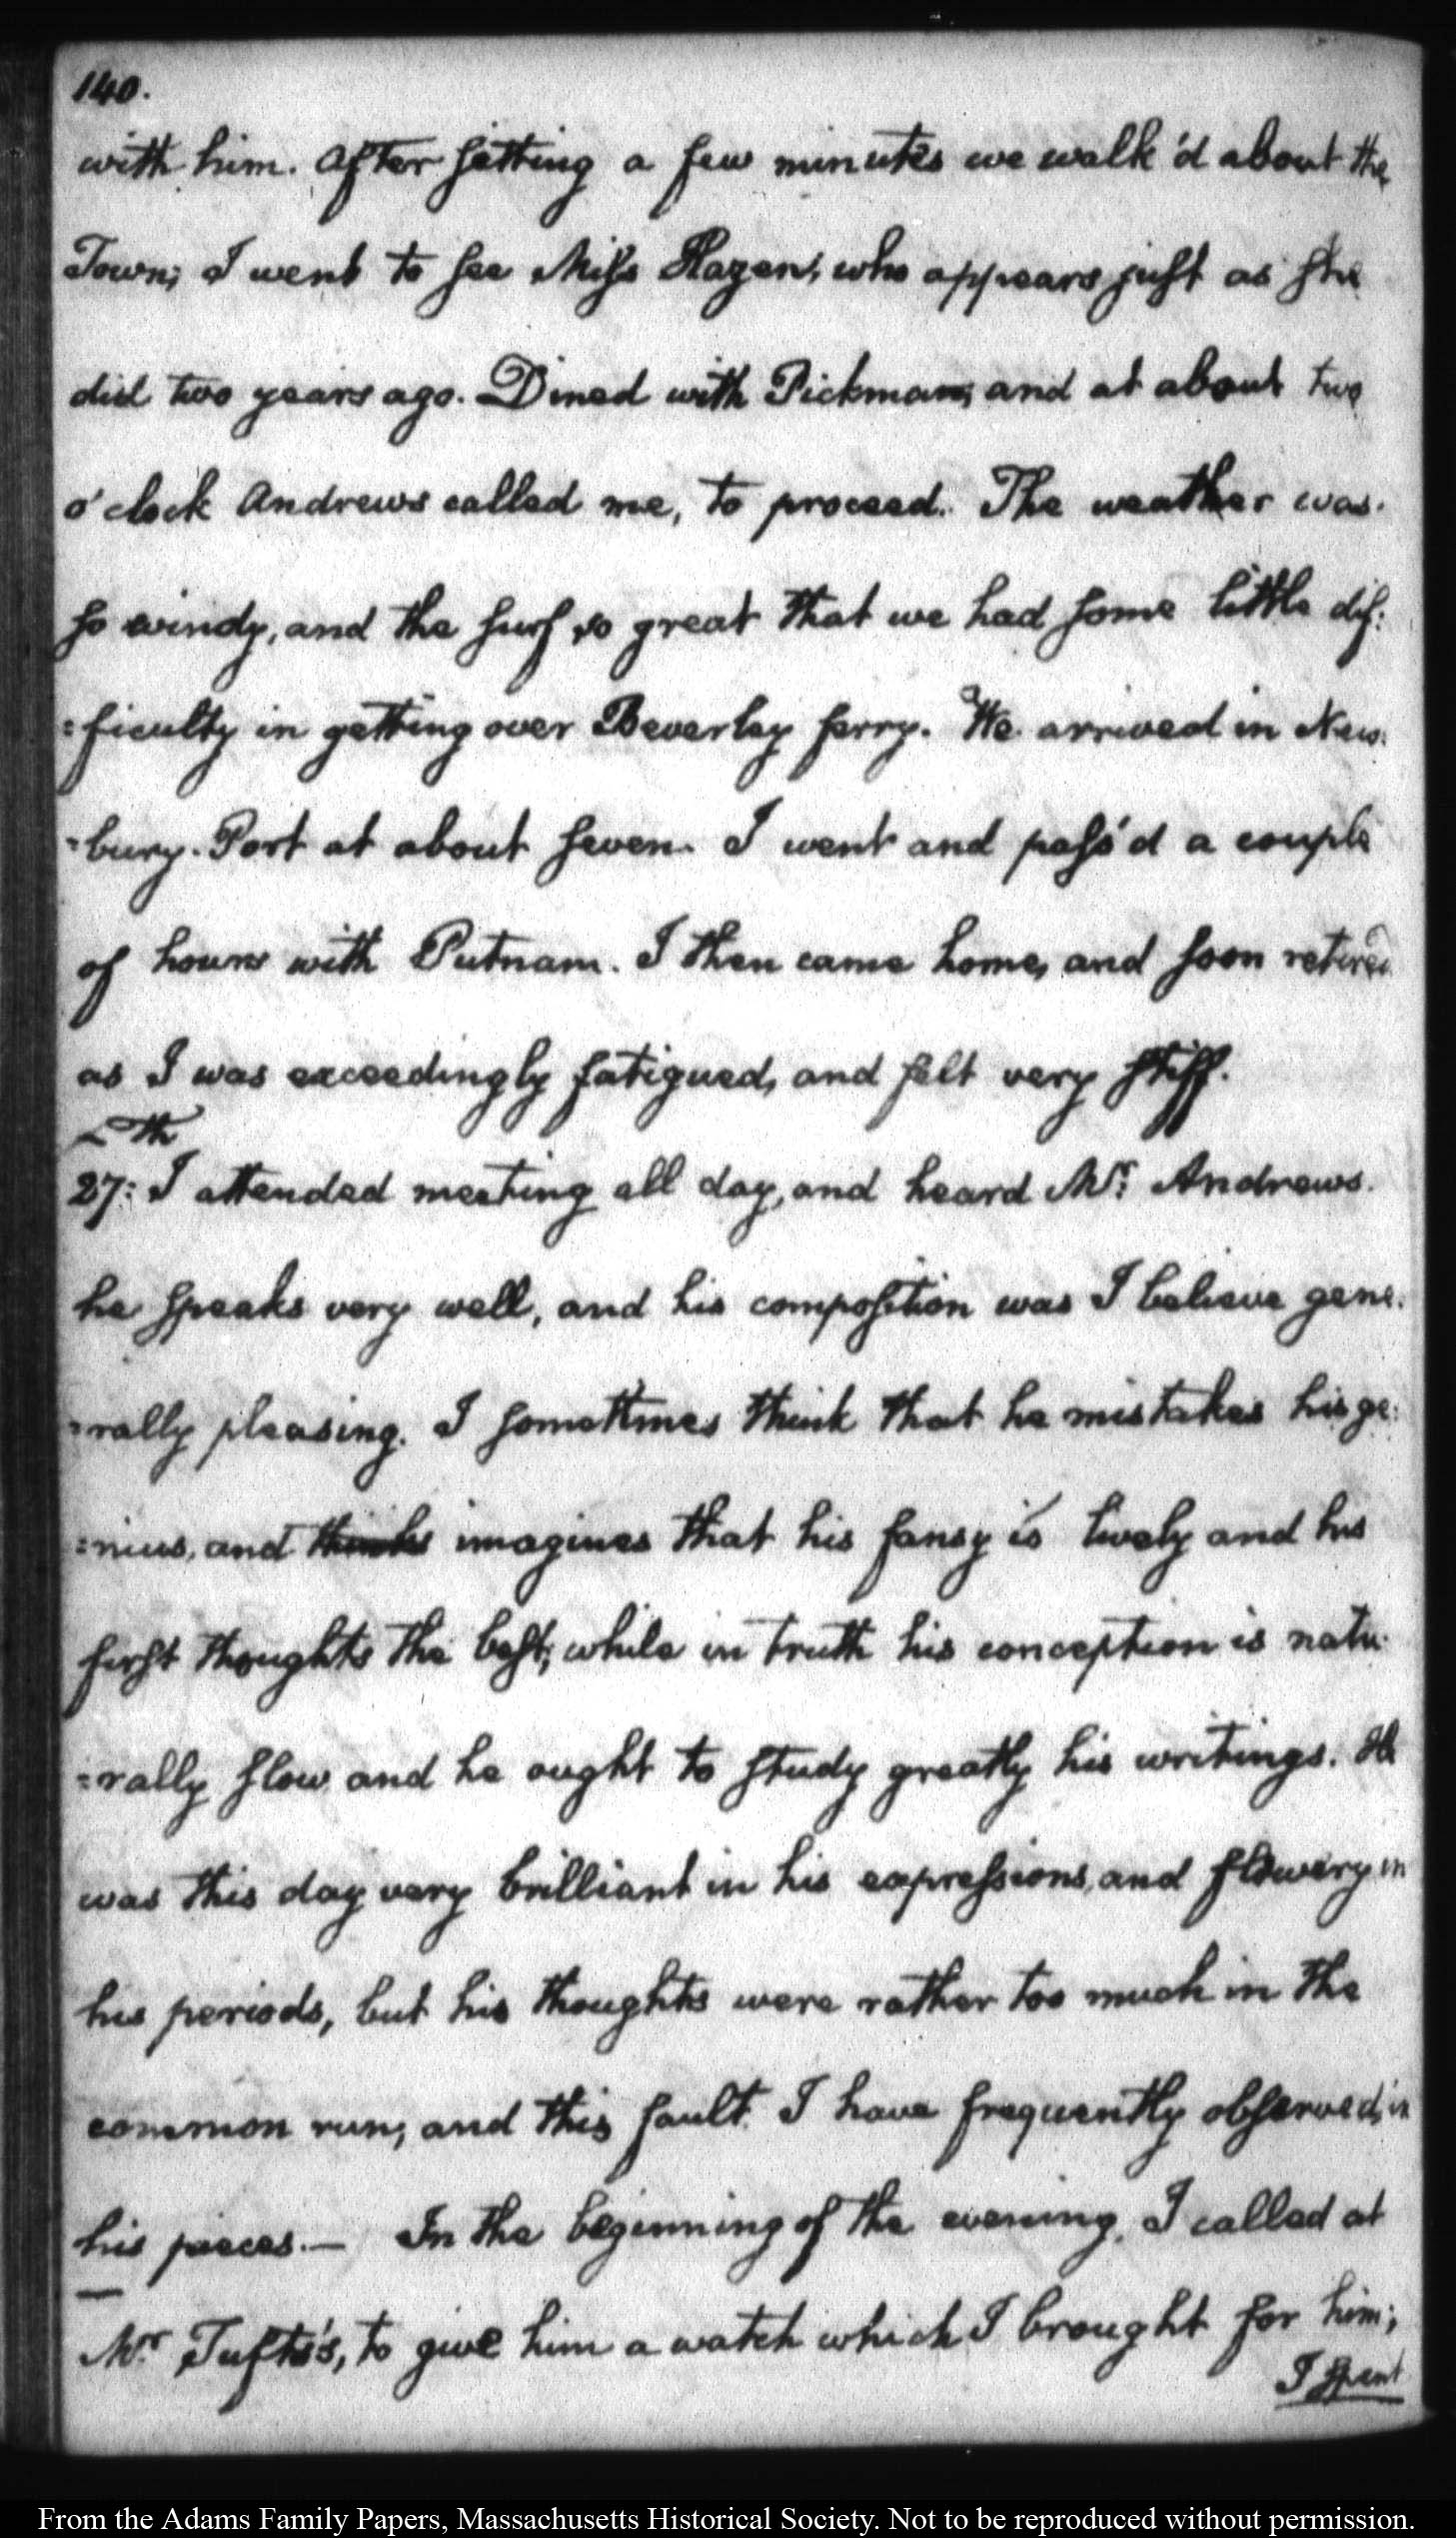 140.
with him. After sitting a few minutes we walk'd about the
Town; I went to see Miss Hazen, who appears just as she
did two years ago. Dined with Pickman, and at about two
o'clock Andrews called me, to proceed. The weather was
so windy, and the surf so great that we had some little dif:
=ficulty in getting over Beverley ferry. We arrived in New:
=bury-Port at about seven. I went and pass'd a couple
of hours with Putnam. I then came home, and soon retired
as I was exceedingly fatigued, and felt very stiff.
th
27: I attended meeting all day, and heard Mr. Andrews.
he speaks very well, and his composition was I believe gene:
=rally pleasing. I sometimes think that he mistakes his ge:
=nius, and thinks imagines that his fansy is lively and his
first thoughts the best; while in truth his conception is natu:
=rally slow and he ought to study greatly his writings. He
was this day very brilliant in his expressions, and flowery in
his periods, but his thoughts were rather too much in the
common run, and this fault I have frequently observed, in
his pieces.— In the beginning of the evening, I called at
Mr. Tufts's, to give him a watch which I brought for him;
I spent
From the Adams Family Papers, Massachusetts Historical Society. Not to be reproduced without permission.